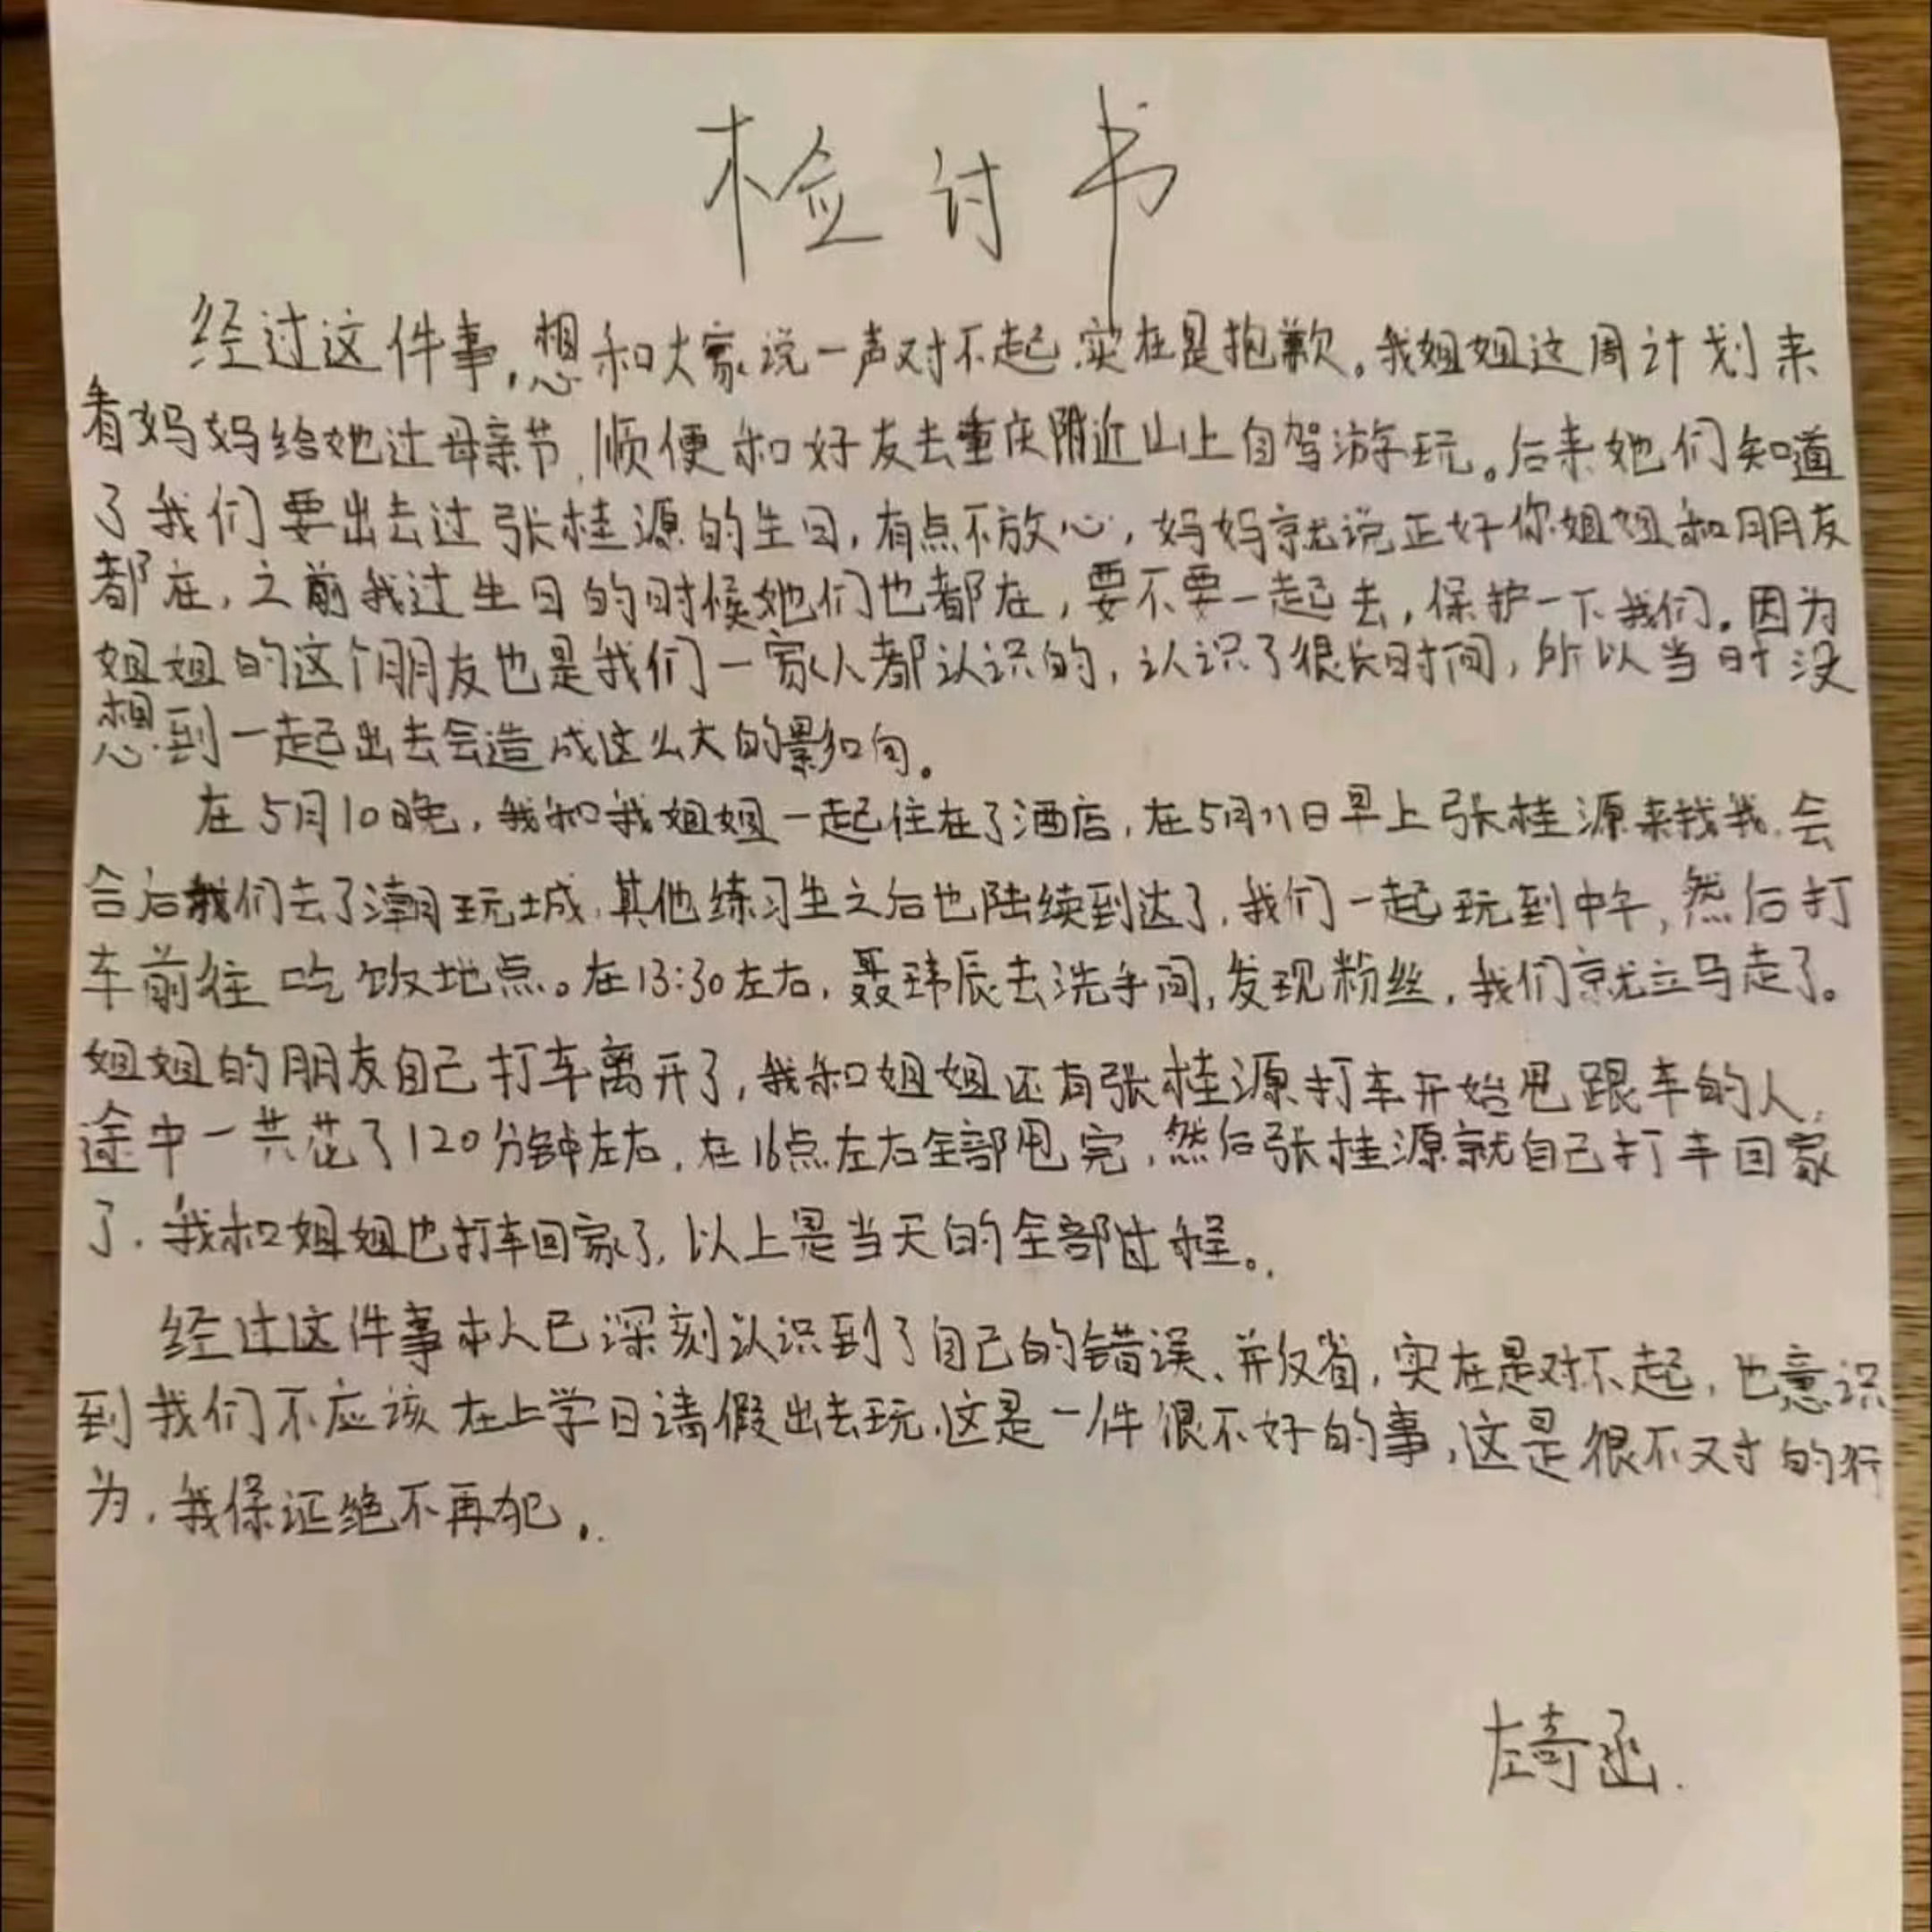 检讨书
经过这件事,想和大家说一声对不起.实在是抱歉。我姐姐这周计划来
看妈妈给她过母亲节,顺便和好友去重庆附近山上自驾游玩。后来她们知道
了我们要出去过张桂源的生日,有点不放心,妈妈就说正好你姐姐和朋友
都在,之前我过生日的时候她们也都在,要不要一起去,保护一下我们。因为
姐姐的这个朋友也是我们一家人都认识的,认识了很长时间,所以当时没
想到一起出去会造成这么大的影响。
在5月10晚,我和我姐姐一起住在了酒店,在5月11日早上张桂源来找我.会
合后我们去了潮玩城.其他练习生之后也陆续到达了,我们一起玩到中午,然后打
车前往吃饭地点。在13:30左右,聂玮辰去洗手间,发现粉丝,我们就立马走了。
姐姐的朋友自己打车离开了,我和姐姐还有张桂源打车开始甩跟车的人,
途中一共花了120分钟左右,在16点左右全部甩完,然后张桂源就自己打车回家
了.我和姐姐也打车回家了,以上是当天的全部过程。.
经过这件事本人已深刻认识到了自己的错误、并反省,实在是对不起,也意识
到我们不应该在上学日请假出去玩.这是一件很不好的事,这是很不对的行
为,我保证绝不再犯,.
左奇函.